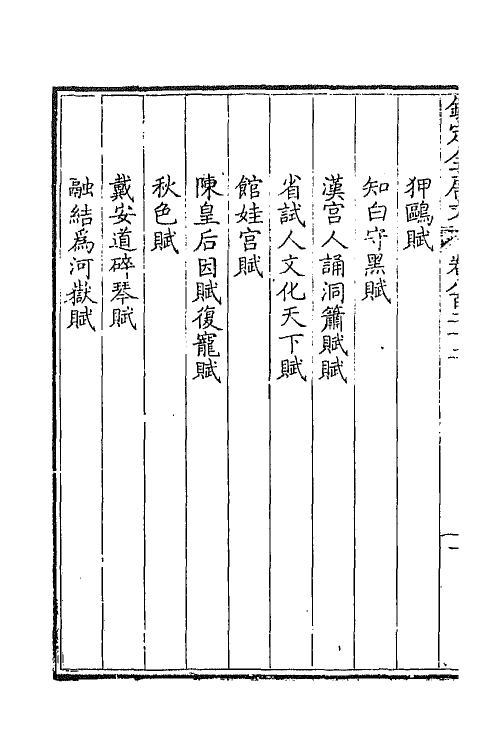 欽定全唐文 卷八百二十二 一
狎鷗賦
知白守黑賦
漢宮人誦洞簫賦賦
省試人文化天下賦
館娃宮賦
陳皇后因賦復寵賦
秋色賦
戴安道碎琴賦
融結爲河嶽賦